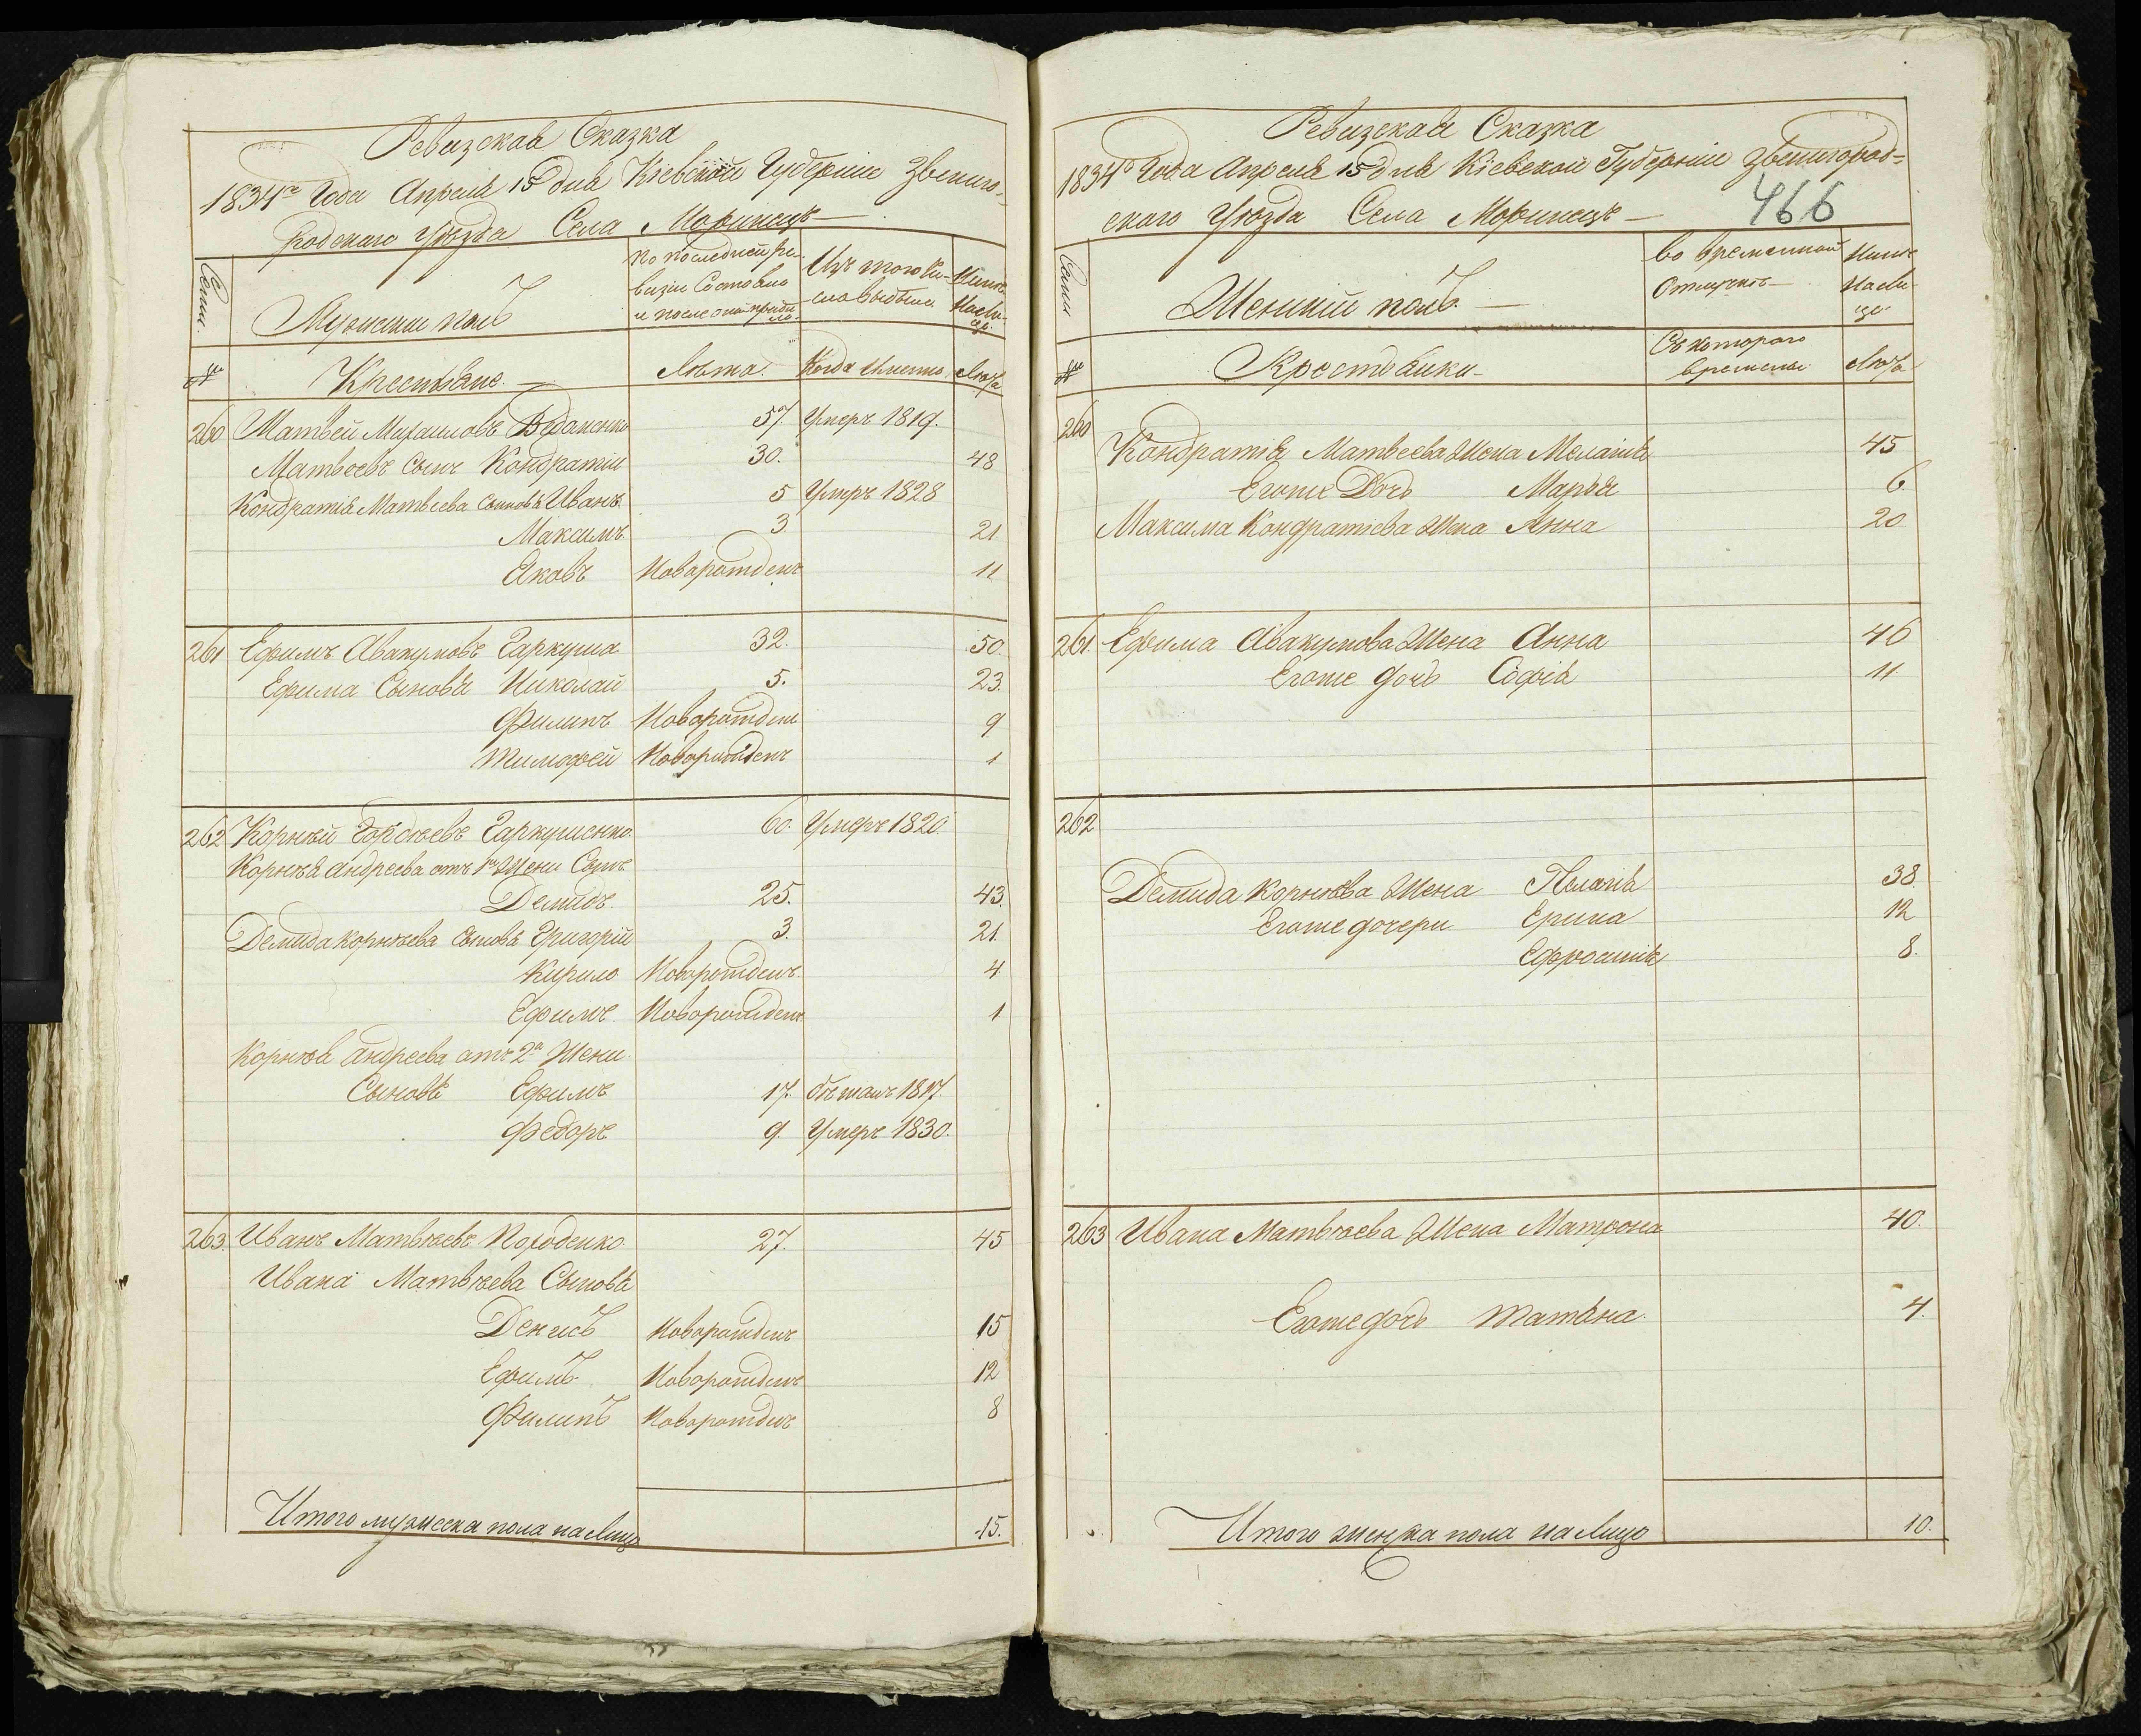 Ревизская Сказка
1834го Года Апреля 15 дня Кіевской Губерніи Звениго-
родскаго Уѣзда Села Моринецъ
Семьи
Мужеский полъ
По последней ре-
визіи Состояло
и после оной прибы
ло
Изъ того Чи-
сла выбыло
Нынѣ
На Ли-
цо
№
Крестьяне.
Лѣта.
Когда Именно
Лѣта
260 Матвей Михаиловъ 57 Умеръ 1819.
Матвеевъ Сынъ Кондратий 30. 48
Кондратія Матвеева Сыновья Иванъ 5 Умеръ 1828
Максимъ 3 21
Яковъ Новорожденъ 11
261 Ефимъ Авакумовъ Гаркуша 32. 50.
Ефима Сыновья Николай 5. 23.
Филипъ Новорожден 9
Тимофей Новорожденъ 1
262 Корнѣй Гаркушенко 60. Умеръ 1820.
Корнѣя Андреева отъ 1й Жены Сынъ
Демидъ 25. 43.
Демида Корнѣева Сыновья Григорій 3. 21.
Кирило Новорожденъ. 4
Ефимъ Новорожденъ 1
Корнѣя Андреева отъ 2й Жены
Сыновья Ефимъ 17. бѣжалъ 1817.
Федоръ 9. Умеръ 1830.
263. Иванъ Матвѣевъ Породенко 27. 45
Ивана Матвѣева Сыновья
Денисъ Новорожденъ 15
Ефимъ Новорожденъ 12
Филипъ Новорожденъ 8
Итого мужеска пола на Лицо 15.
Ревизская Сказка
1834го Года Апреля 15 Дня Кіевской Губерніи Звенигород-
скаго Уѣзда Села Моринецъ
466
Семьи
Женский полъ
Во временной
Отлучкѣ
Нынѣ
На Ли-
цо
№
Крестьянки
Съ котораго
времени
Лѣта
260
Кондратія Матвеева Жена Мелания 45
Егоже Дочь Марья 6
Максима Кондратіева Жена Анна 20
261. Ефима Авакумова Жена Анна 46
Егоже дочь Софія 11.
262
Демида Корнѣева Жена Пелагія 38
Егоже дочери Ерина 12
Ефросинія 8.
263 Ивана Матвѣева Жена Матрона 40.
Егоже дочь Татьяна. 4.
Итого женска пола на Лицо 10.